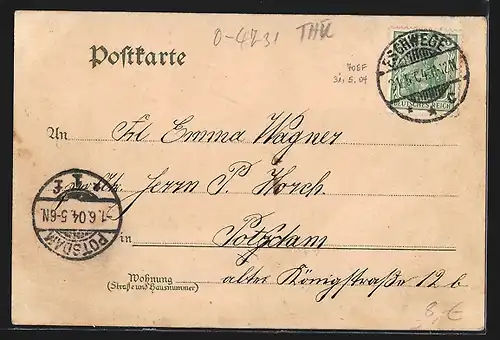 0-4231 THÜ
Postkarte
ESCHWEGE
31.5.04
DEUTSCHES REICH
31.5.04
An Frl Emma Wagner
Herrn P. Horch.
1.6.04.5-6N.
POTSDAM
in Potsdam
Wohnung
(Straße und Hausnummer)
alte Königstraße 12 b
8,€